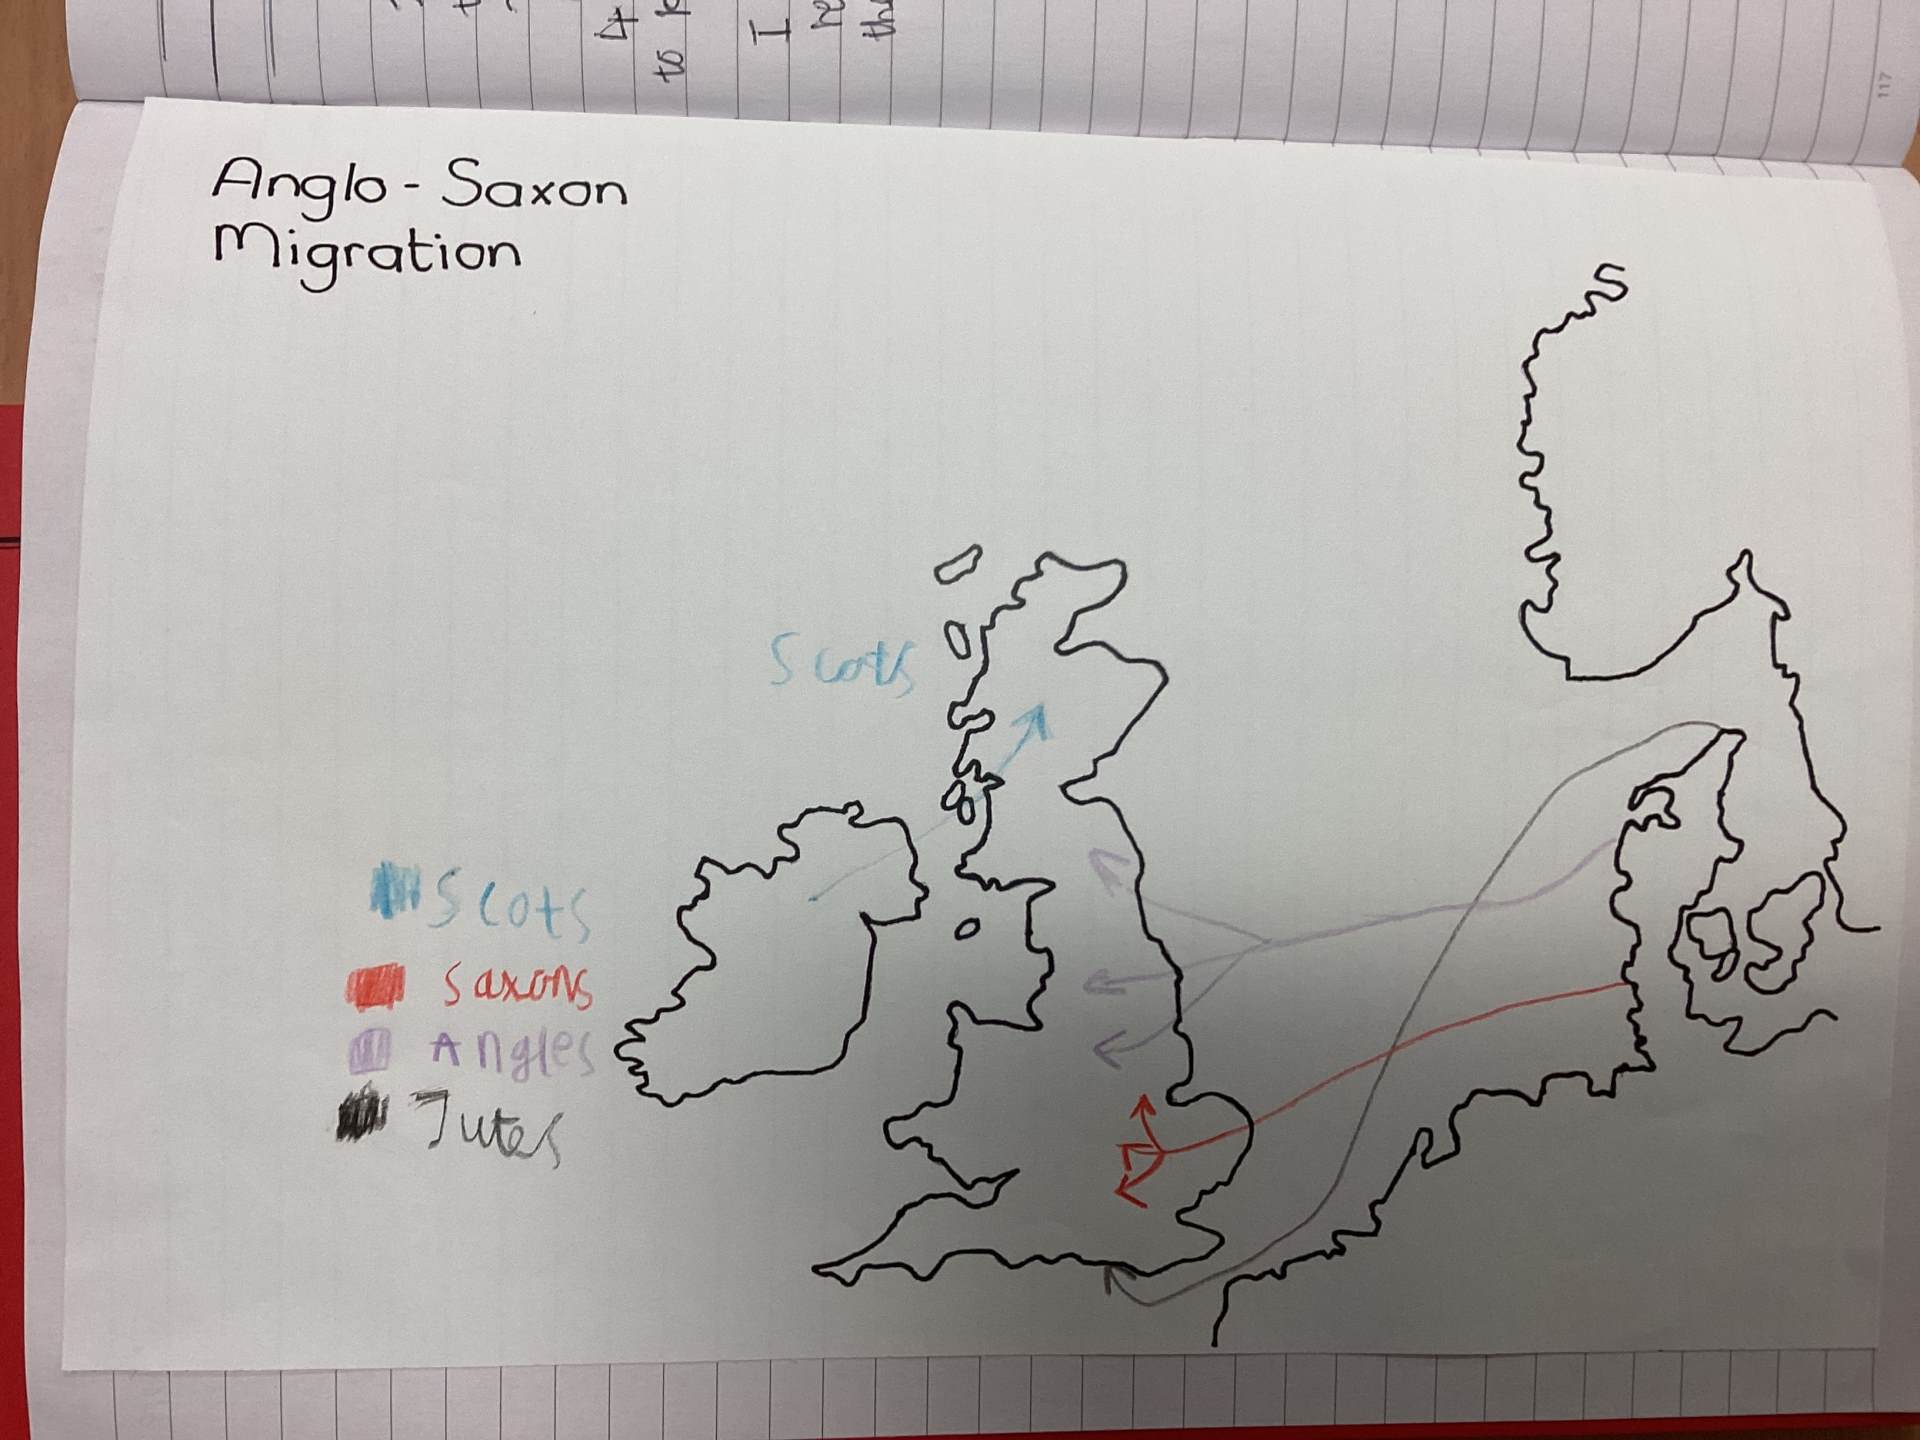 Anglo-Saxon
Migration
Scots
Scots
Saxons
Angles
Jutes
to
I
117